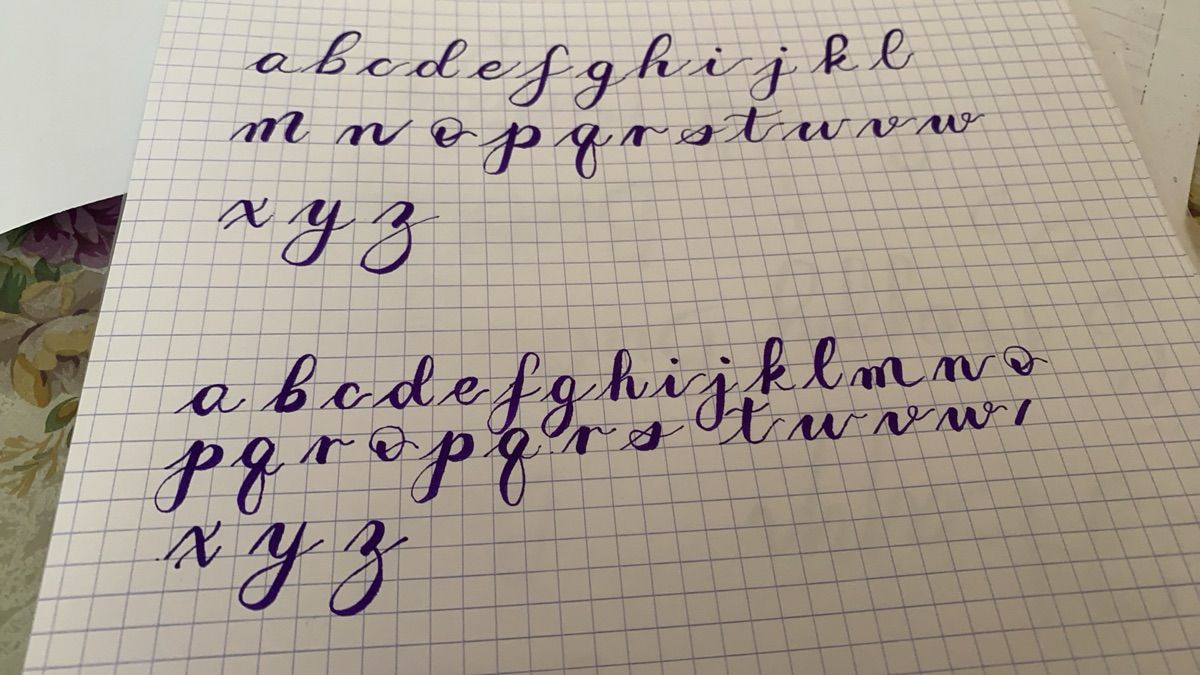 a b c d e f g h i j k l
m n o p q r s t u v w
x y z
a b c d e f g h i j k l m n o
p q r o p q r s t u v w,
x y z